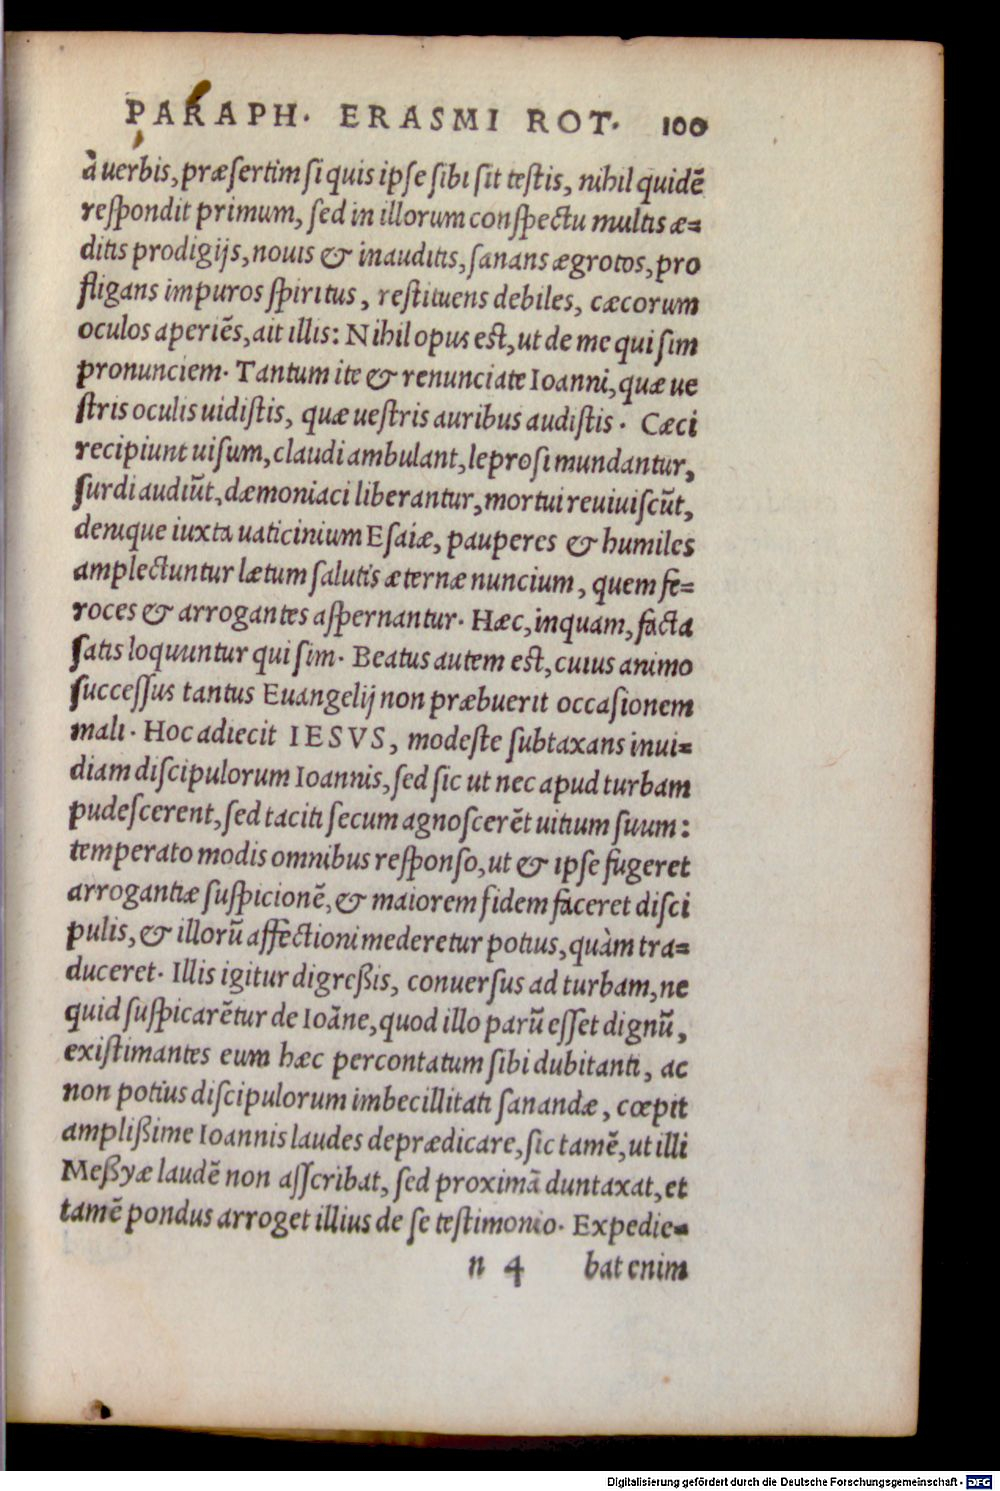 PARAPH. ERASMI ROT. 100
à uerbis, præſertim ſi quis ipſe ſibi ſit teſtis, nihil quidẽ
reſpondit primum, ſed in illorum conſpectu multis æ=
ditis prodigijs, nouis & inauditis, ſanans ægrotos, pro
fligans impuros ſpiritus, reſtituens debiles, cæcorum
oculos aperiẽs, ait illis: Nihil opus est, ut de me qui ſim
pronunciem. Tantum ite & renunciate Ioanni, quæ ue
ſtris oculis uidiſtis, quæ ueſtris auribus audiſtis. Cæci
recipiunt uiſum, claudi ambulant, leproſi mundantur,
ſurdi audiũt, dæmoniaci liberantur, mortui reuiuiſcũt,
denique iuxta uaticinium Eſaiæ, pauperes & humiles
amplectuntur lætum ſalutis æternæ nuncium, quem fe=
roces & arrogantes aſpernantur. Hæc, inquam, facta
ſatis loquuntur qui ſim. Beatus autem est, cuius animo
ſucceſſus tantus Euangelij non præbuerit occaſionem
mali. Hoc adiecit IESVS, modeſte ſubtaxans inui=
diam diſcipulorum Ioannis, ſed ſic ut nec apud turbam
pudeſcerent, ſed taciti ſecum agnoſcerẽt uitium ſuum:
temperato modis omnibus reſponſo, ut & ipſe fugeret
arrogantiæ ſuſpicionẽ, & maiorem fidem faceret diſci
pulis, & illorũ affectioni mederetur potius, quàm tra=
duceret. Illis igitur digreßis, conuerſus ad turbam, ne
quid ſuſpicarẽtur de Ioãne, quod illo parũ eſſet dignũ,
exiſtimantes eum hæc percontatum ſibi dubitanti, ac
non potius diſcipulorum imbecillitati ſanandæ, cœpit
amplißime Ioannis laudes deprædicare, ſic tamẽ, ut illi
Meßyæ laudẽ non aſſcribat, ſed proximã duntaxat, et
tamẽ pondus arroget illius de ſe teſtimonio. Expedie=
n 4 bat enim
Digitalisierung gefördert durch die Deutsche Forschungsgemeinschaft - DFG